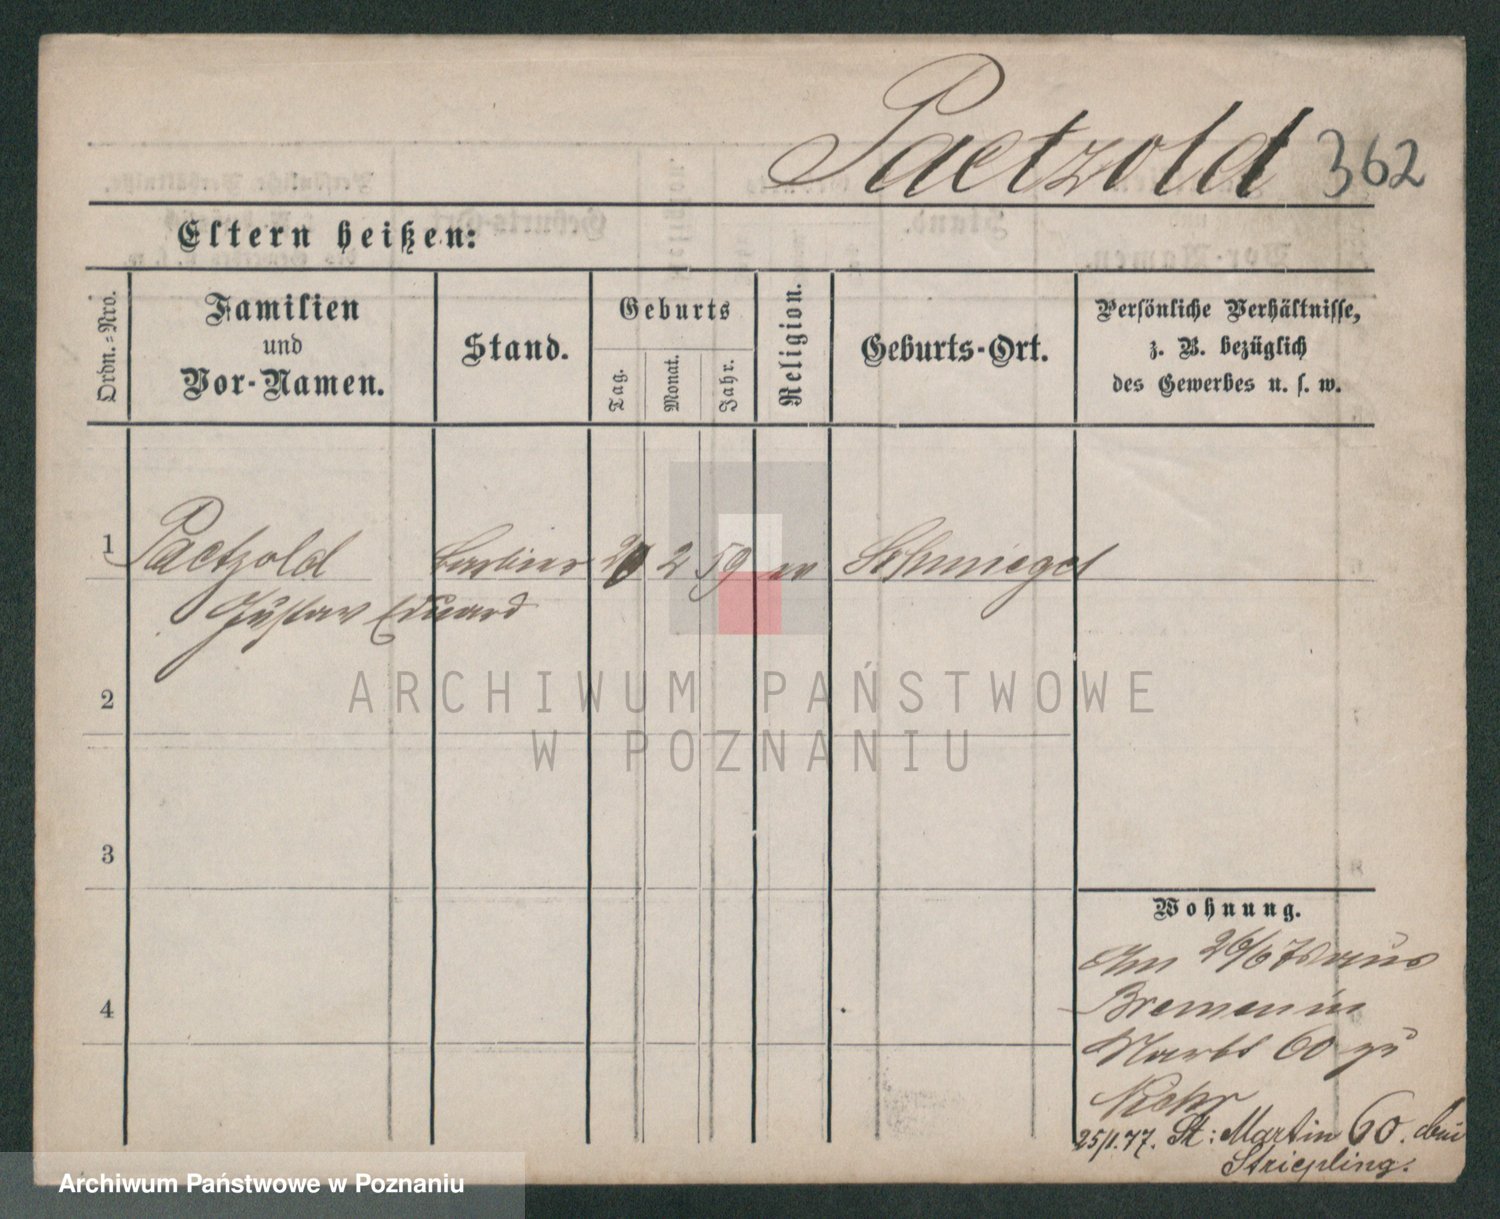 Paetzold 362
Eltern heißen:
Ordn.=Nro.
Familien
und
Vor-Namen.
Stand.
Geburts
Tag.
Monat.
Jahr.
Religion.
Geburts-Ort.
Persönliche Verhältnisse,
z. B. bezüglich
des Gewerbes u. s. w.
1 Paetzold 2 59 ev Schmiegel
Gustav Eduard
2
3
4
Wohnung.
Am 26/6 aus
Bremen in
Markt 60 zu
25/1.77. St: Martin 60. bei
Striepling.
ARCHIWUM PAŃSTWOWE
W POZNANIU
Archiwum Państwowe w Poznaniu